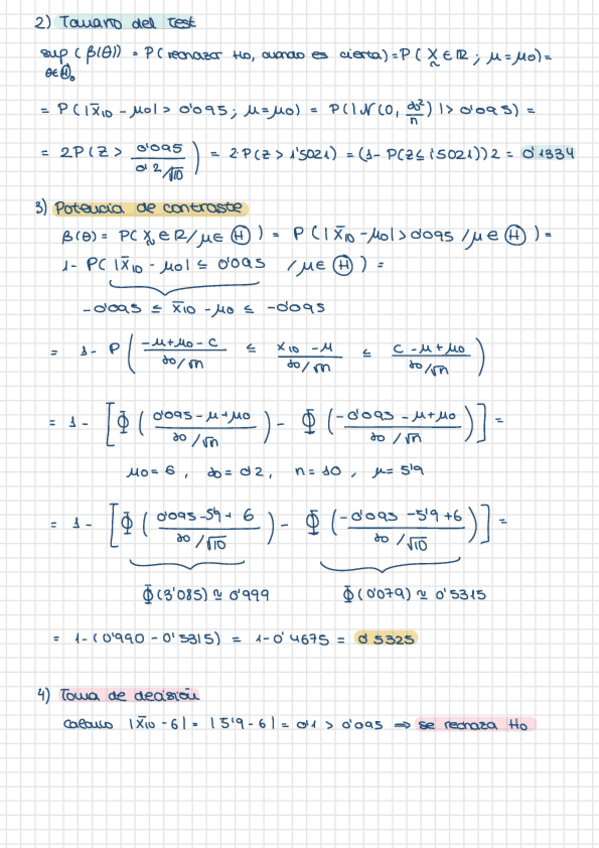 2) Tamaño del test
sup (β(θ)) = P(rechazar H0, cuando es cierta) = P(X ∈ R; μ=μ0) =
θ∈Θ0
= P(|X̄10 - μ0| > 0'095; μ=μ0) = P(|N(0, σ0²/n)| > 0'095) =
= 2P(Z > 0'095 / (0'2/√10)) = 2·P(Z > 1'5021) = (1- P(Z ≤ 1'5021))2 = 0'1334
3) Potencia de contraste
β(θ) = P(X ∈ R/μ ∈ Θ) = P(|X̄10 - μ0| > 0'095 /μ ∈ Θ) =
1- P(|X̄10 - μ0| ≤ 0'095 /μ ∈ Θ) =
-0'095 ≤ X̄10 - μ0 ≤ -0'095
= 1- P((-μ+μ0-c)/(σ0/√n) ≤ (x10 - μ)/(σ0/√n) ≤ (c-μ+μ0)/(σ0/√n))
= 1- [Φ((0'095-μ+μ0)/(σ0/√n)) - Φ((-0'095-μ+μ0)/(σ0/√n))] =
μ0=6, σ0=0'2, n=10, μ=5'9
= 1- [Φ((0'095-5'9+6)/(σ0/√10)) - Φ((-0'095-5'9+6)/(σ0/√10))] =
Φ(3'085) ≃ 0'999 Φ(0'079) ≃ 0'5315
= 1-(0'990-0'5315) = 1-0'4675 = 0'5325
4) Toma de decisión
Calculo |X̄10 - 6| = |5'9 - 6| = 0'1 > 0'095 ⇒ se rechaza H0